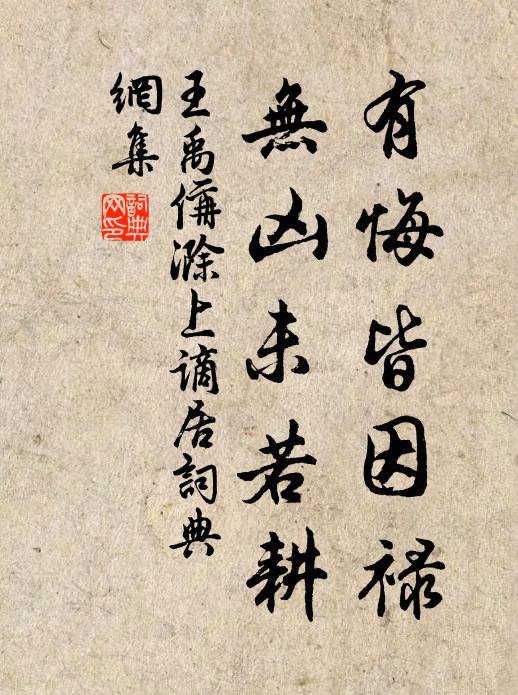 有悔皆因禄
無凶未若耕
王禹偁滁上谪居詞典
網集
詞典
网印